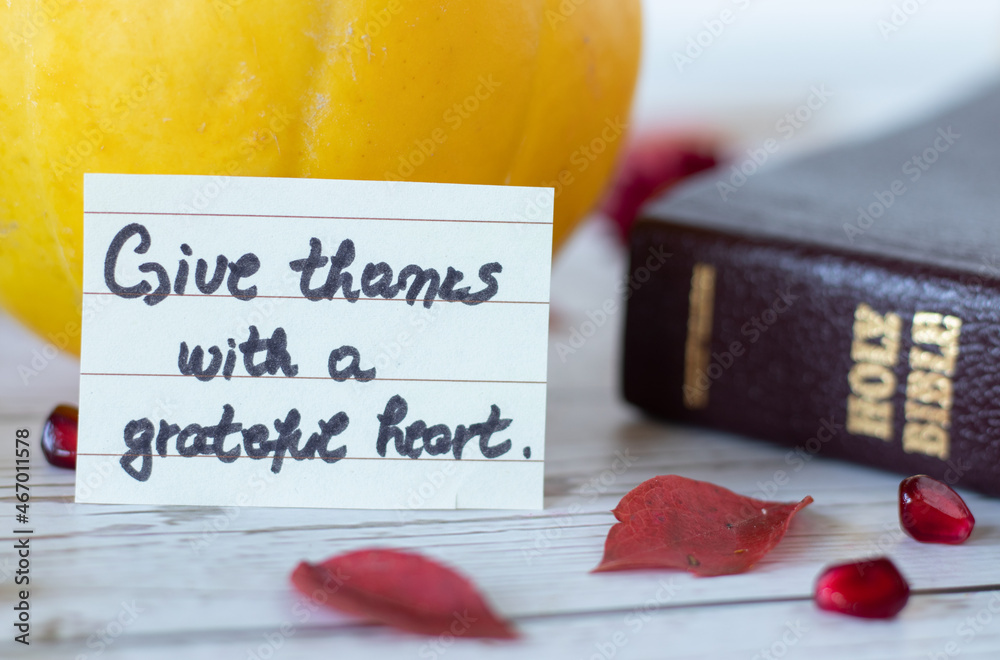 Give thanks
with a
grateful heart.
HOLY
BIBLE
Adobe Stock | #467011578